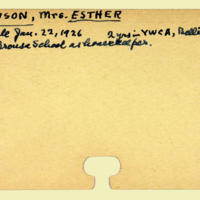 SON, Mrs. ESTHER
Jan. 22, 1926 2 yrs - YWCA, Balti
School as housekeeper.